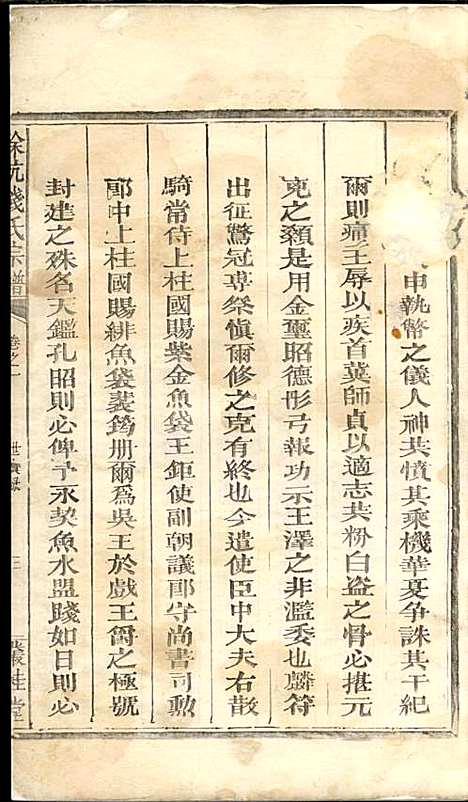 申執幣之儀人神共憤其乘機華夏爭誅其干紀
爾則痛王辱以疾首冀師貞以適志共粉白盗之骨必揕元
克之顙是用金璽昭德彤弓報功示王澤之非濫委也麟符
出征鷩冠専祭慎爾修之克有終也今遣使臣中大夫右散
騎常侍上柱國賜紫金魚袋王鉅使副朝議郎守尚書司勲
郎中上柱國賜緋魚袋裴筠册爾為吳王於戲王爵之極號
封建之殊名天鑑孔昭則必俾予永契魚水盟踐如日則必
餘杭錢氏宗譜 卷之二 世實録 三